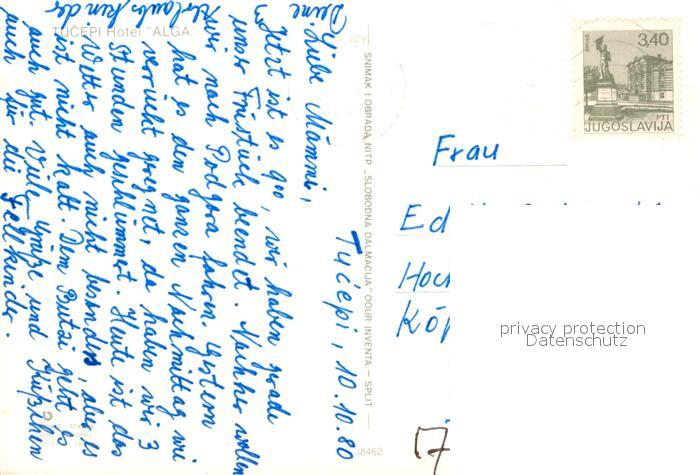 Tučepi, 10.10.80
Liebe Mammi,
Jetzt ist es 9⁰⁰, wir haben gerade
unser Früstück beendet. Nachher wollen
wir nach Podgora fahren. Gestern
hat es den ganzen Nachmittag wie
verrückt geregnet, da haben wir 3
Stunden geschlummert. Heute ist das
Wetter auch nicht besonders, aber es
ist nicht kalt. Dem Butzi geht es
auch gut. Viele Grüße und Küßchen
auch für die Fellkinder.
Deine
Urlaubskinder
TUČEPI Hotel "ALGA"
SNIMAK I OBRADA NITP „SLOBODNA DALMACIJA" OOUR INVENTA — SPLIT —
3,40
PTT
JUGOSLAVIJA
Frau
Ed
Hoc
Köl
17
38462
privacy protection
Datenschutz